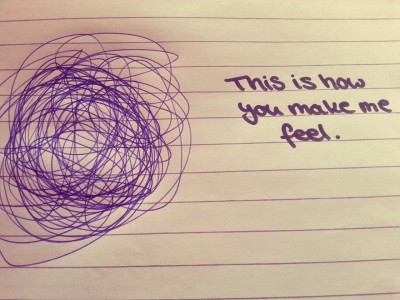 This is how
you make me
feel.